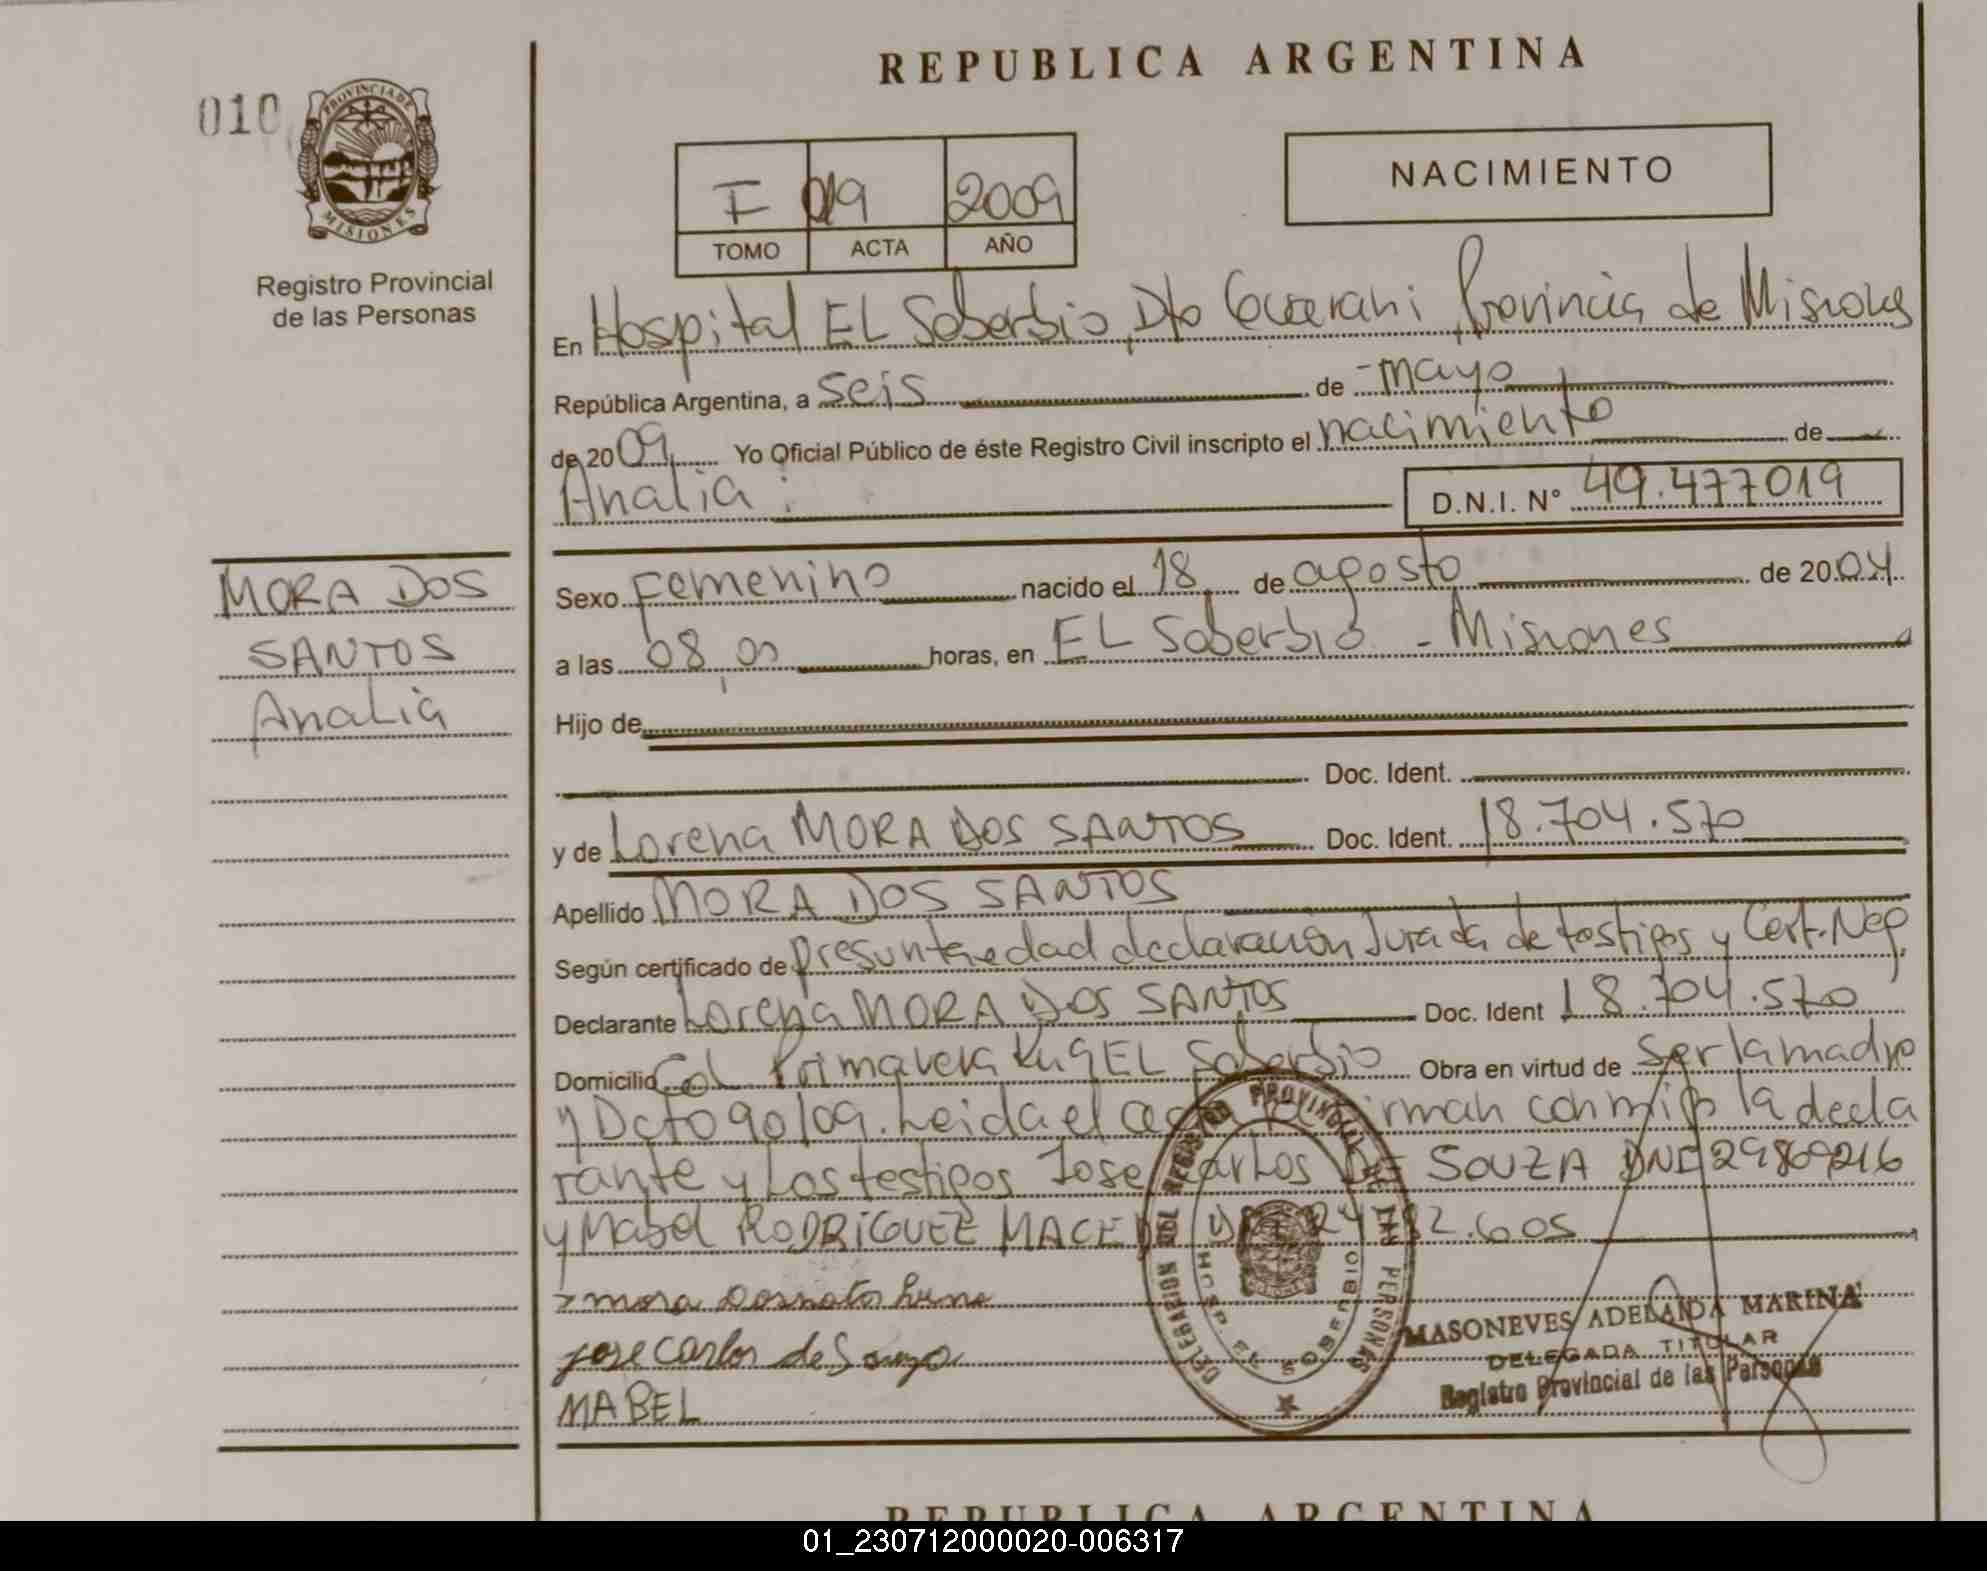 REPUBLICA ARGENTINA
010
PROVINCIA DE
MISIONES
Registro Provincial
de las Personas
I 019 2009
TOMO ACTA AÑO
NACIMIENTO
En Hospital EL Soberbio, Dto Guarani Provincia de Misiones
República Argentina, a seis de mayo
de 2009 Yo Oficial Público de éste Registro Civil inscripto el nacimiento de
Analia : D.N.I. N° 49.477019
MORA DOS
SANTOS
Analia
Sexo Femenino nacido el 18 de agosto de 2004
a las 08,00 horas, en EL Soberbio - Misiones
Hijo de
Doc. Ident.
y de Lorena MORA DOS SANTOS Doc. Ident. 18.704.570
Apellido MORA DOS SANTOS
Según certificado de presunta edad declaración Jurada de testigos y Cert. Neg.
Declarante Lorena MORA DOS SANTOS Doc. Ident 18.704.570
Domicilio Col Primavera EL Soberbio Obra en virtud de Ser la madre
y Dcto 90/09. Leida el acta firman conmigo la decla
rante y Los testigos Jose Carlos DE SOUZA DNI 29869216
y Mabel RODRIGUEZ MACEDO 24782.605
jose Carlos de Souza
MABEL
DELEGACION DEL REGISTRO PROVINCIAL DE PERSONAS
HOSP. EL SOBERBIO
MASONEVES ADELAIDA MARINA
DELEGADA TITULAR
Registro Provincial de las Personas
REPUBLICA ARGENTINA
01_230712000020-006317